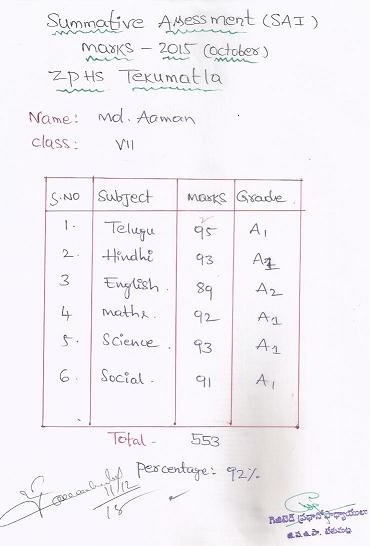 Summative Assessment (SAI)
marks - 2015 (october)
ZPHS Tekumatla
Name: Md. Aaman
class: VII
S.NO Subject marks Grade
1. Telugu 95 A1
2. Hindhi 93 A1
3 English. 89 A2
4 maths. 92 A1
5. Science. 93 A1
6. Social. 91 A1
Total - 553
percentage: 92%
11/12
15
గెజిటెడ్ ప్రధానోపాధ్యాయులు
జి.ప.ఉ.పా. టేకుమట్ల